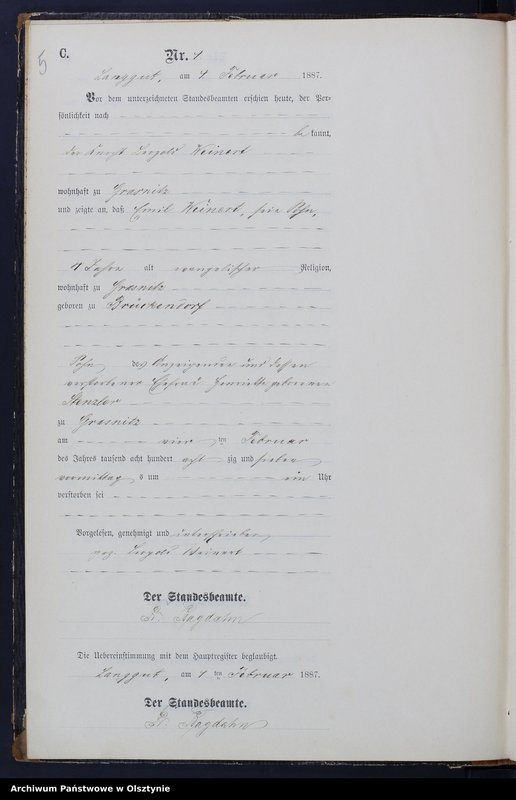 5
C.
Nr. 4
Langgut, am 4 Februar 1887.
Vor dem unterzeichneten Standesbeamten erschien heute, der Per-
sönlichkeit nach
be kannt,
der Leopold Weinert
wohnhaft zu Grasnitz
und zeigte an, daß Emil Weinert, sein Sohn,
4 Jahre alt evangelischer Religion,
wohnhaft zu Grasnitz
geboren zu Brückendorf
Sohn des Anzeigenden und dessen
verstorbener Ehefrau Henriette geborenen
Stenzler
zu Grasnitz
am vier ten Februar
des Jahres tausend acht hundert acht zig und sieben
vormittag s um ein Uhr
verstorben sei
Vorgelesen, genehmigt und unterschrieben
gez. Leopold Weinert
Der Standesbeamte.
Bagdahn
Die Uebereinstimmung mit dem Hauptregister beglaubigt.
Langgut, am 4 ten Februar 1887.
Der Standesbeamte.
Bagdahn
Archiwum Państwowe w Olsztynie